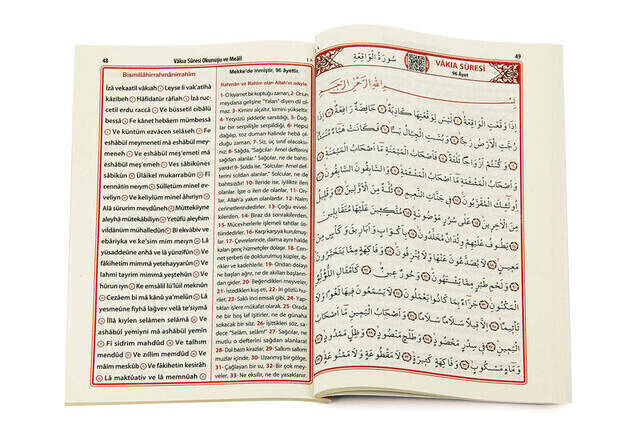 48
Vâkıa Sûresi Okunuşu ve Meâli
Bismillâhirrahmânirrahîm
İzâ vekaatil vâkıah Leyse li vak'atihâ
kâzibeh Hâfidatür râfiah İzâ ruc-
cetil erdu racca Ve büssetil cibâlü
bessâ Fe kânet hebâem mümbessâ
Ve küntüm ezvâcen selâseh Fe
eshâbül meymeneti mâ eshâbül mey-
meneh Ve eshâbül meş'emeti mâ
eshâbül meş'emeh Ves sâbikûnes
sâbikûn Ülâikel mukarrabûn Fî
cennâtin neıym Sülletüm minel ev-
velîyn Ve kelîylüm minel âhırîyn
Alâ sürurim mevdûneh Müttekiiyne
aleyhâ mütekâbilîyn Yetûfü aleyhim
vildânüm mühalledûn Bi ekvâbiv ve
ebâriyka ve ke'sim mim meıyn Lâ
yüsaddeûne anhâ ve lâ yünzifûn Ve
fâkihetim mimmâ yetehayyerûn Ve
lahmi tayrim mimmâ yeştehûn Ve
hûrun ıyn Ke emsâlil lü'lüil meknûn
Cezâem bi mâ kânû ya'melûn Lâ
yesmeûne fiyhâ lağvev velâ te'siymâ
İllâ kıylen selâmen selâmâ Ve
ashâbül yemiyni mâ ashâbül yemîn
Fî sidrim mahdûd Ve talhım
mendûd Ve zıllim memdûd Ve
mâim meskûb Ve fâkihetin kesîrah
Lâ maktûativ ve lâ memnûah
Mekke'de inmiştir, 96 âyettir.
Rahmân ve Rahîm olan Allah'ın adıyla.
1- O kıyamet bir koptuğu zaman, 2- Onun
meydana gelişine "Yalan" diyen dil ol-
maz. 3- Kimini alçaltır, kimini yükseltir.
4- Yeryüzü şiddetle sarsıldığı, 5- Dağ-
lar bir serpilişle serpildiği, 6- Hepsi
dağılıp, toz duman halinde hebâ ol-
duğu zaman. 7- Siz, üç sınıf olacaksı-
nız: 8- Sağda, "Sağcılar- Amel defterini
sağdan alanlar." Sağcılar, ne de bahti-
yardır! 9- Solda ise, "Solcular- Amel def-
terini soldan alanlar." Solcular, ne de
bahtsızdır! 10- İleride ise, iyilikte ileri
olanlar. İşte o ileri de olanlar, 11- On-
lar, Allah'a yakın olanlardır. 12- Naîm
cennetlerindedirler. 13- Çoğu evvel-
kilerden, 14- Biraz da sonrakilerden.
15- Mücevherlerle işlemeli tahtlar üs-
tündedirler. 16- Karşı karşıya kurulmuş-
lar. 17- Çevrelerinde, daima aynı halde
kalan genç hizmetçiler dolaşır. 18- Cen-
net şerbeti ile doldurulmuş küpler, ib-
rikler ve kadehlerle. 19- Ondan dolayı
ne başları ağrır, ne de akılları başların-
dan gider. 20- Beğendikleri meyveler,
21- İstedikleri kuş eti, 22- İri gözlü hu-
riler, 23- Saklı inci emsali gibi, 24- Yap-
tıkları işlere mükâfat olarak. 25- Orada
ne bir boş laf işitirler, ne de günaha
sokacak bir söz. 26- İşittikleri söz, sa-
dece "Selâm, selâm!" 27- Sağcılar, ne
mutlu o defterini sağdan alanlara!
28- Dal bastı kirazlar, 29- Salkım salkım
muzlar içinde, 30- Uzanmış bir gölge,
31- Çağlayan bir su, 32- Bir çok mey-
veler, 33- Ne eksilir, ne de yasaklanır.
49
VÂKIA SÛRESİ
96 Âyet
سُورَةُ الْوَاقِعَةِ
بِسْمِ اللّٰهِ الرَّحْمٰنِ الرَّحِيمِ
اِذَا وَقَعَتِ الْوَاقِعَةُ لَيْسَ لِوَقْعَتِهَا كَاذِبَةٌ خَافِضَةٌ رَافِعَةٌ اِذَا
رُجَّتِ الْاَرْضُ رَجًّا وَبُسَّتِ الْجِبَالُ بَسًّا فَكَانَتْ هَبَاءً مُنْبَثًّا
وَكُنْتُمْ اَزْوَاجًا ثَلٰثَةً فَاَصْحَابُ الْمَيْمَنَةِ مَا اَصْحَابُ الْمَيْمَنَةِ
وَاَصْحَابُ الْمَشْـَٔمَةِ مَا اَصْحَابُ الْمَشْـَٔمَةِ وَالسَّابِقُونَ السَّابِقُونَ
اُولٰٓئِكَ الْمُقَرَّبُونَ فِي جَنَّاتِ النَّعِيمِ ثُلَّةٌ مِنَ الْاَوَّلِينَ وَقَلِيلٌ
مِنَ الْاٰخِرِينَ عَلٰى سُرُرٍ مَوْضُونَةٍ مُتَّكِـِٔينَ عَلَيْهَا مُتَقَابِلِينَ
يَطُوفُ عَلَيْهِمْ وِلْدَانٌ مُخَلَّدُونَ بِاَكْوَابٍ وَاَبَارِيقَ وَكَأْسٍ مِنْ
مَعِينٍ لَا يُصَدَّعُونَ عَنْهَا وَلَا يُنْزِفُونَ وَفَاكِهَةٍ مِمَّا يَتَخَيَّرُونَ
وَلَحْمِ طَيْرٍ مِمَّا يَشْتَهُونَ وَحُورٌ عِينٌ كَاَمْثَالِ اللُّؤْلُؤِ
الْمَكْنُونِ جَزَاءً بِمَا كَانُوا يَعْمَلُونَ لَا يَسْمَعُونَ فِيهَا لَغْوًا وَلَا
تَأْثِيمًا اِلَّا قِيلًا سَلَامًا سَلَامًا وَاَصْحَابُ الْيَمِينِ مَا اَصْحَابُ
الْيَمِينِ فِي سِدْرٍ مَخْضُودٍ وَطَلْحٍ مَنْضُودٍ وَظِلٍّ مَمْدُودٍ
وَمَاءٍ مَسْكُوبٍ وَفَاكِهَةٍ كَثِيرَةٍ لَا مَقْطُوعَةٍ وَلَا مَمْنُوعَةٍ